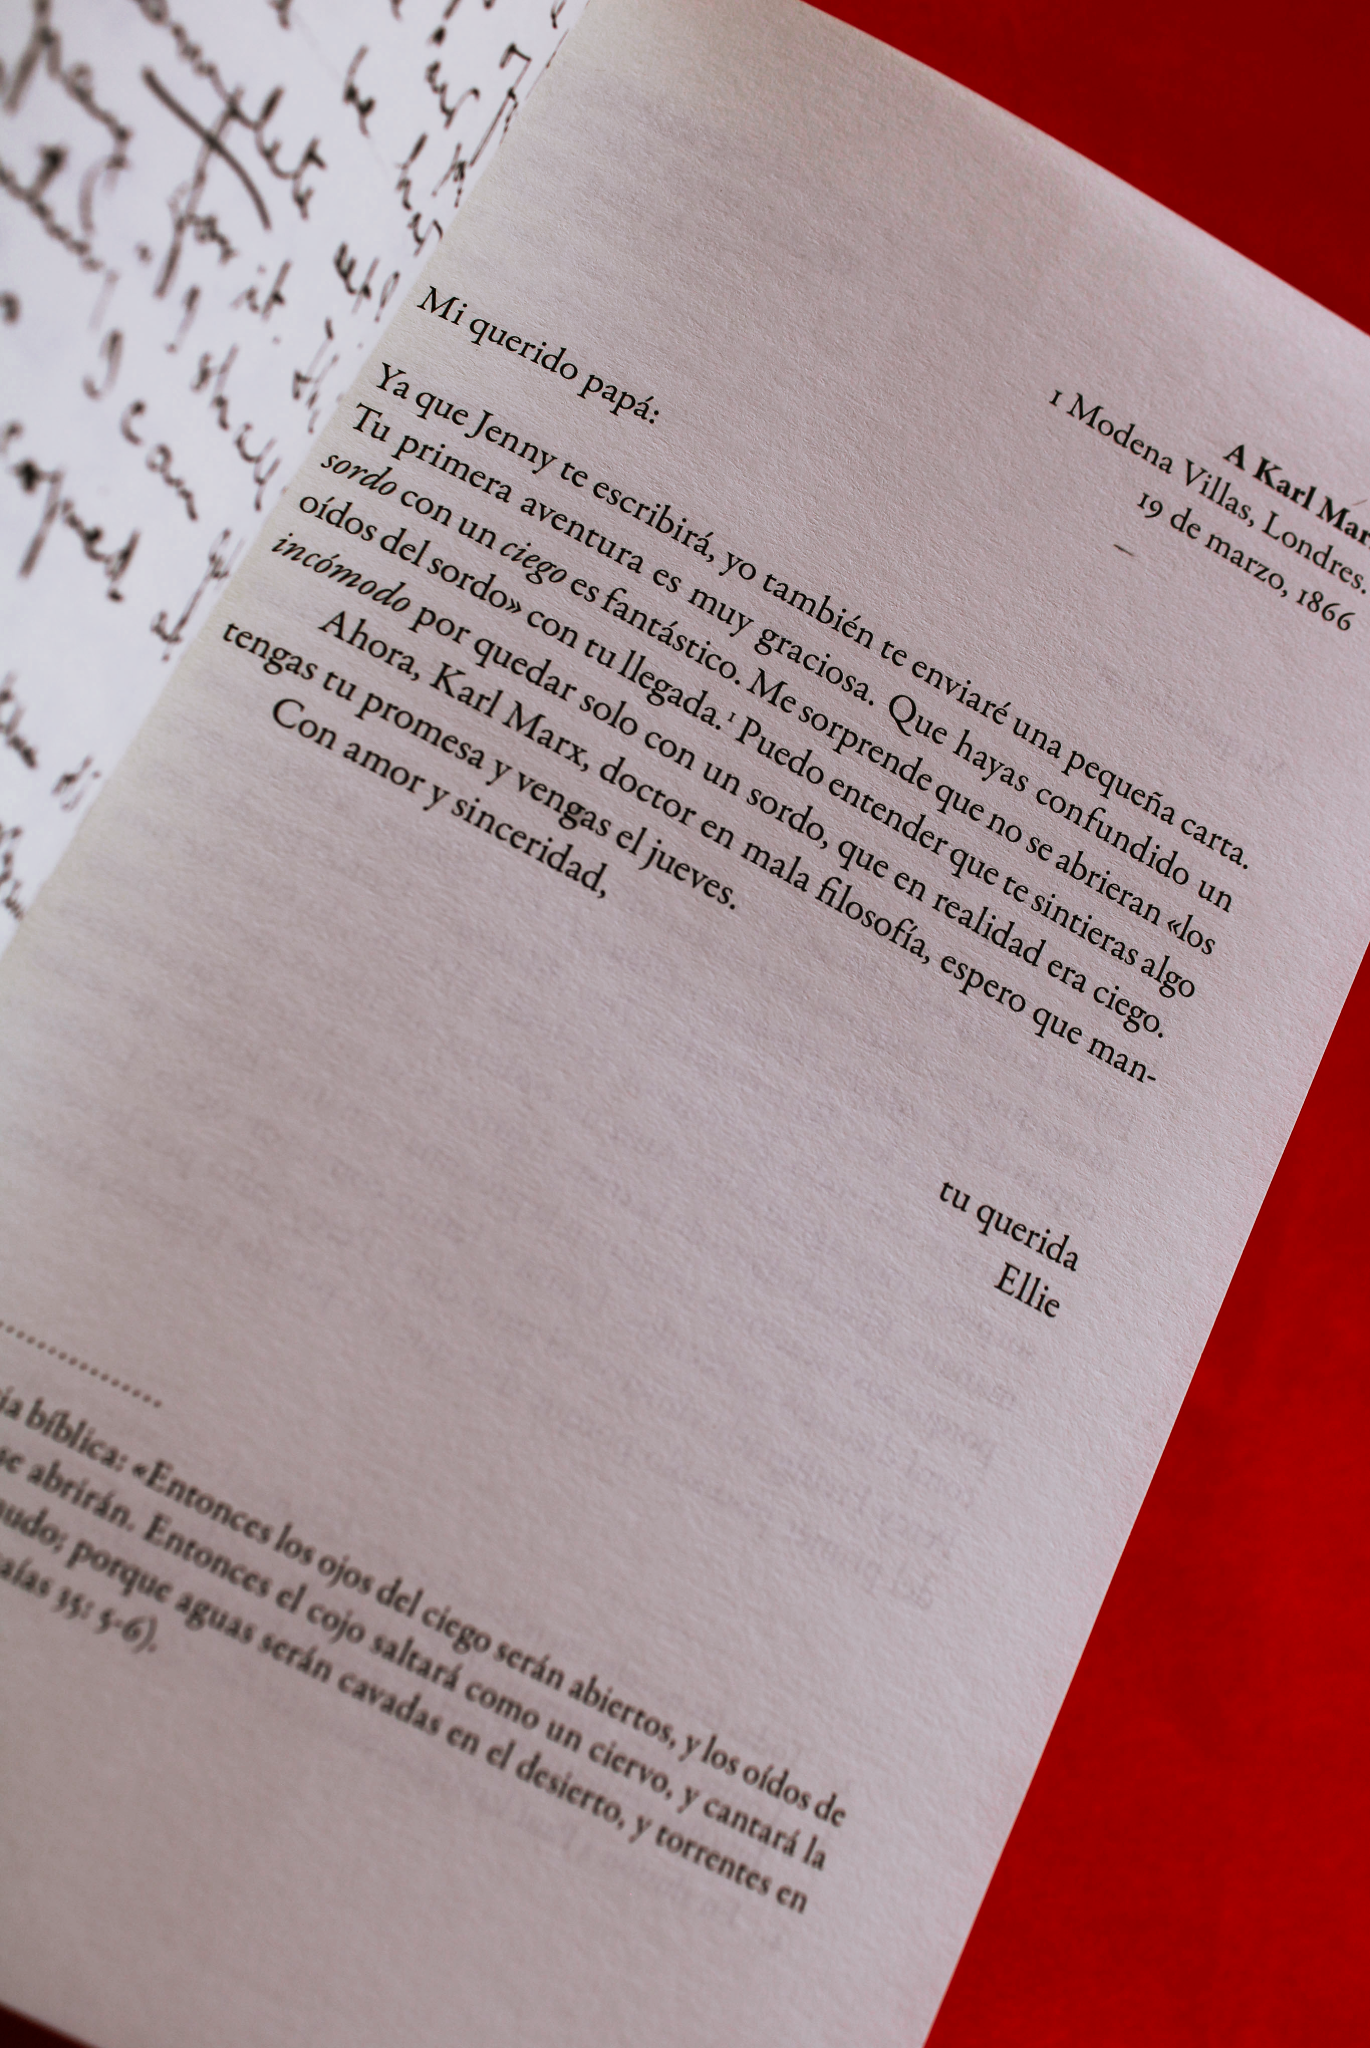 A Karl Mar
1 Modena Villas, Londres.
19 de marzo, 1866
Mi querido papá:
Ya que Jenny te escribirá, yo también te enviaré una pequeña carta.
Tu primera aventura es muy graciosa. Que hayas confundido un
sordo con un ciego es fantástico. Me sorprende que no se abrieran «los
oídos del sordo» con tu llegada.¹ Puedo entender que te sintieras algo
incómodo por quedar solo con un sordo, que en realidad era ciego.
Ahora, Karl Marx, doctor en mala filosofía, espero que man-
tengas tu promesa y vengas el jueves.
Con amor y sinceridad,
tu querida
Ellie
ia bíblica: «Entonces los ojos del ciego serán abiertos, y los oídos de
se abrirán. Entonces el cojo saltará como un ciervo, y cantará la
mudo; porque aguas serán cavadas en el desierto, y torrentes en
aías 35: 5-6).
complete
be
for it
shall
I can